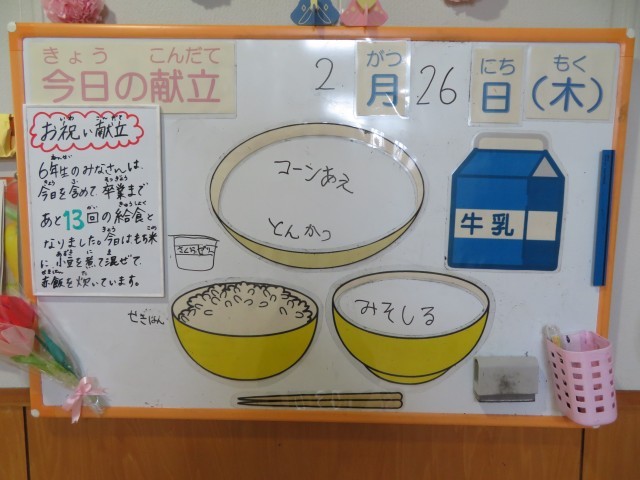 きょう こんだて
今日の献立
2月26日(木)
がつ にち もく
お祝い献立
6年生のみなさんは、
今日を含めて、卒業まで
あと13回の給食と
なりました。今日はもち米
に、小豆を煮て混ぜて、
お赤飯を炊いています。
コーンあえ
とんかつ
牛乳
さくらゼリー
せきはん
みそしる